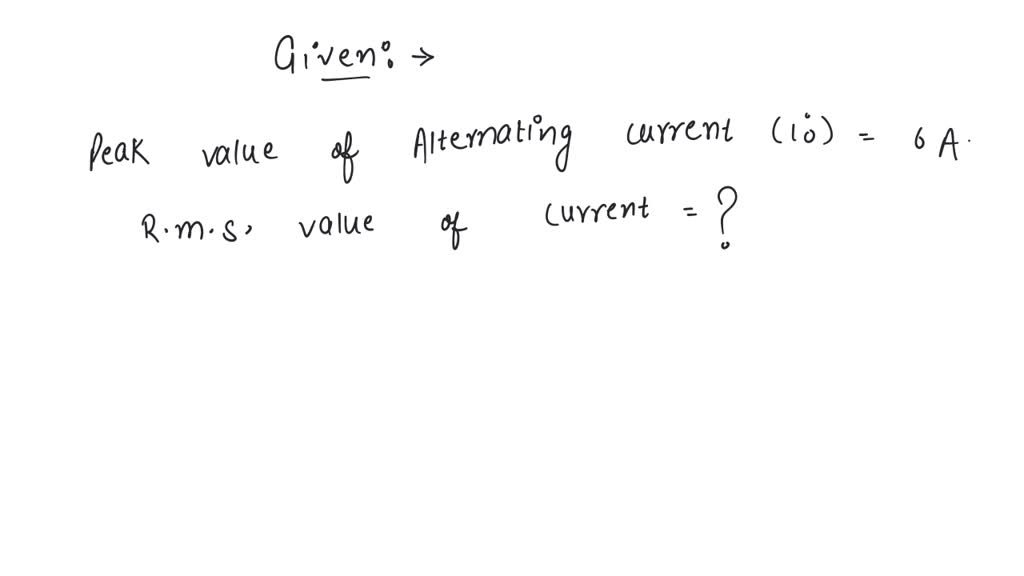 Given: →
Peak value of Alternating current (i0) = 6 A.
R.m.s. value of current = ?